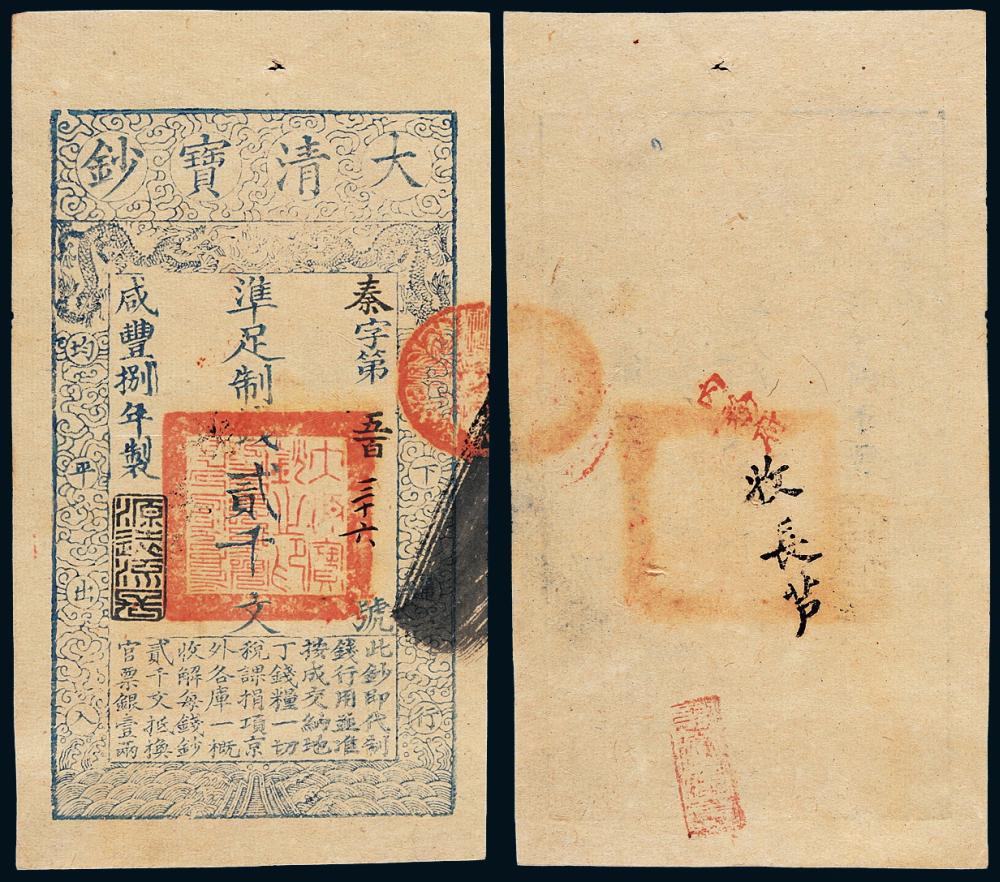 大清寶鈔
秦字第五百三十六號
準足制錢貳千文
咸豐捌年製
天下通行
均平出入
此鈔即代制
錢行用並準
按成交納地
丁錢糧一切
稅課捐項京
外各庫一概
收解每錢鈔
貳千文抵換
官票銀壹兩
大清寶鈔之印
源遠流長
收長芦